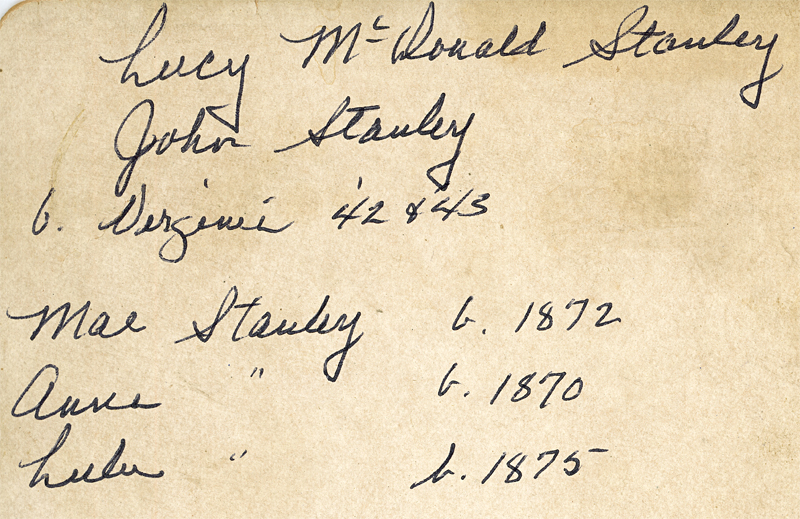 Lucy McDonald Stanley
John Stanley
b. Virginia '42 & '43
Mae Stanley b. 1872
Anna " b. 1870
Lula " b. 1875